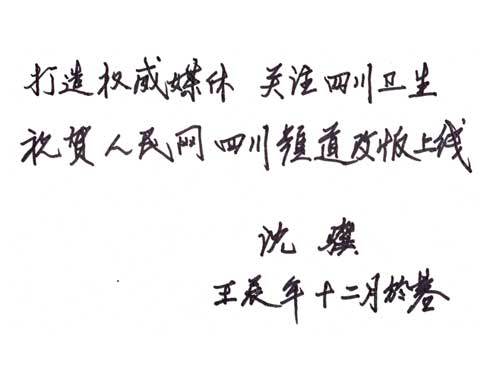 打造权威媒体 关注四川卫生
祝贺人民网四川频道改版上线
沈骥
壬辰年十二月於蓉